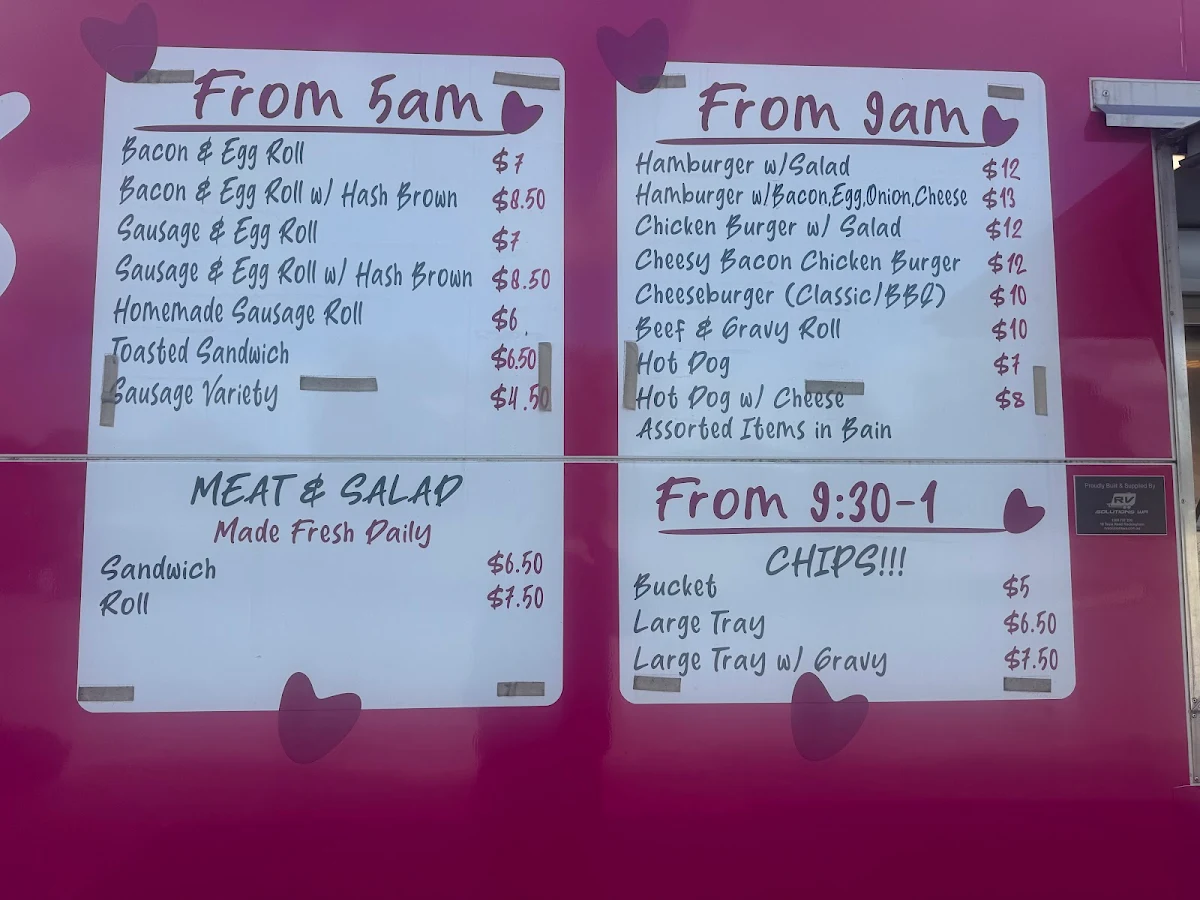 From 5am
Bacon & Egg Roll $7
Bacon & Egg Roll w/ Hash Brown $8.50
Sausage & Egg Roll $7
Sausage & Egg Roll w/ Hash Brown $8.50
Homemade Sausage Roll $6
Toasted Sandwich $6.50
Sausage Variety $4.50
MEAT & SALAD
Made Fresh Daily
Sandwich $6.50
Roll $7.50
From 9am
Hamburger w/Salad $12
Hamburger w/Bacon,Egg,Onion,Cheese $13
Chicken Burger w/ Salad $12
Cheesy Bacon Chicken Burger $12
Cheeseburger (Classic/BBQ) $10
Beef & Gravy Roll $10
Hot Dog $7
Hot Dog w/ Cheese $8
Assorted Items in Bain
From 9:30-1
CHIPS!!!
Bucket $5
Large Tray $6.50
Large Tray w/ Gravy $7.50
Proudly Built & Supplied By
RV
SOLUTIONS WA